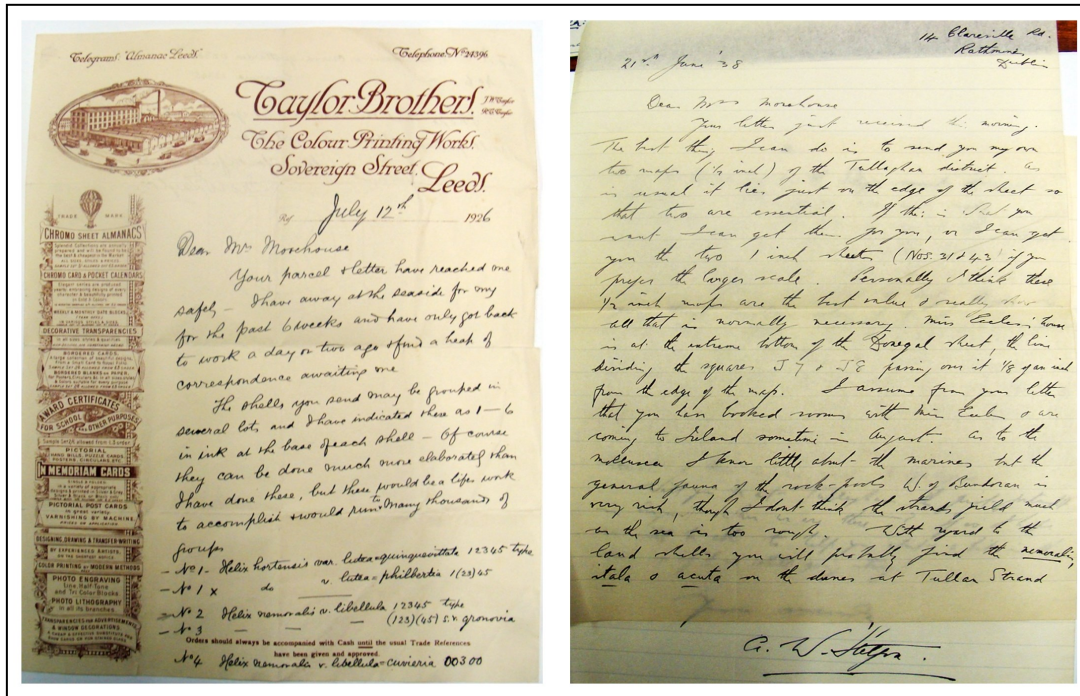 Telegrams "Almanac Leeds."
Telephone No 24396
Taylor Brothers.
The Colour Printing Works.
Sovereign Street, Leeds.
Ref July 12th 1926
TRADE MARK
CHROMO SHEET ALMANACS
CHROMO CARD & POCKET CALENDARS
WEEKLY & MONTHLY DATE BLOCKS
DECORATIVE TRANSPARENCIES
BORDERED CARDS.
AWARD CERTIFICATES
FOR SCHOOL & OTHER PURPOSES
PICTORIAL
IN MEMORIAM CARDS
PICTORIAL POST CARDS
in great variety.
VARNISHING BY MACHINE.
DESIGNING, DRAWING & TRANSFER WRITING
BY EXPERIENCED ARTISTS,
COLOR PRINTING BY MODERN METHODS
PHOTO ENGRAVING
Line Half-Tone
and Tri Color Blocks
PHOTO LITHOGRAPHY
in all its branches
TRANSPARENCIES FOR ADVERTISEMENTS
& WINDOW DECORATIONS.
Dear Mrs Morehouse
Your parcel & letter have reached me
safely – I have away at the seaside for my
for the past 6 weeks and have only got back
to work a day or two ago & find a heap of
correspondence awaiting me
The shells you send may be grouped in
several lots and I have indicated these as 1–6
in ink at the base of each shell – Of course
they can be done much more elaborately than
I have done these, but these would be a life work
to accomplish & would run to many thousands of
groups
– No 1 – Helix hortensis var. lutea = quinquevittata 12345 type
– No 1 x do v. lutea = philbertia 1(23)45
– No 2 Helix nemoralis v. libellula 12345 type
– No 3 – – – (123)(45) s.v. gronovia
Orders should always be accompanied with Cash until the usual Trade References
have been given and approved.
No 4 Helix nemoralis v. libellula = cuvieria 00300
14 Clareville Rd.
Rathmines
Dublin
21st June '38
Dear Mrs Morehouse
Your letter just received this morning.
The best thing I can do is to send you my own
two maps (½ inch) of the Tullaghan district. As
is usual it lies just on the edge of the sheet so
that two are essential. If this is what you
want I can get them for you, or I can get
you the two 1 inch sheets (Nos. 31 & 43) if you
prefer the larger scale. Personally I think these
½ inch maps are the best value & really show
all that is normally necessary. Miss Eccles' house
is at the extreme bottom of the Donegal sheet, the line
dividing the squares J7 & J8 passing over it ⅛ of an inch
from the edge of the map. I assume from your letter
that you have booked rooms with Miss Eccles & are
coming to Ireland sometime in August. As to the
mollusca I know little about the marines but the
general fauna of the rock-pools W. of Bundoran is
very rich, though I don't think the strands yield much
as the sea is too rough. With regard to the
land shells you will probably find the nemoralis,
itala & acuta on the dunes at Tullan Strand